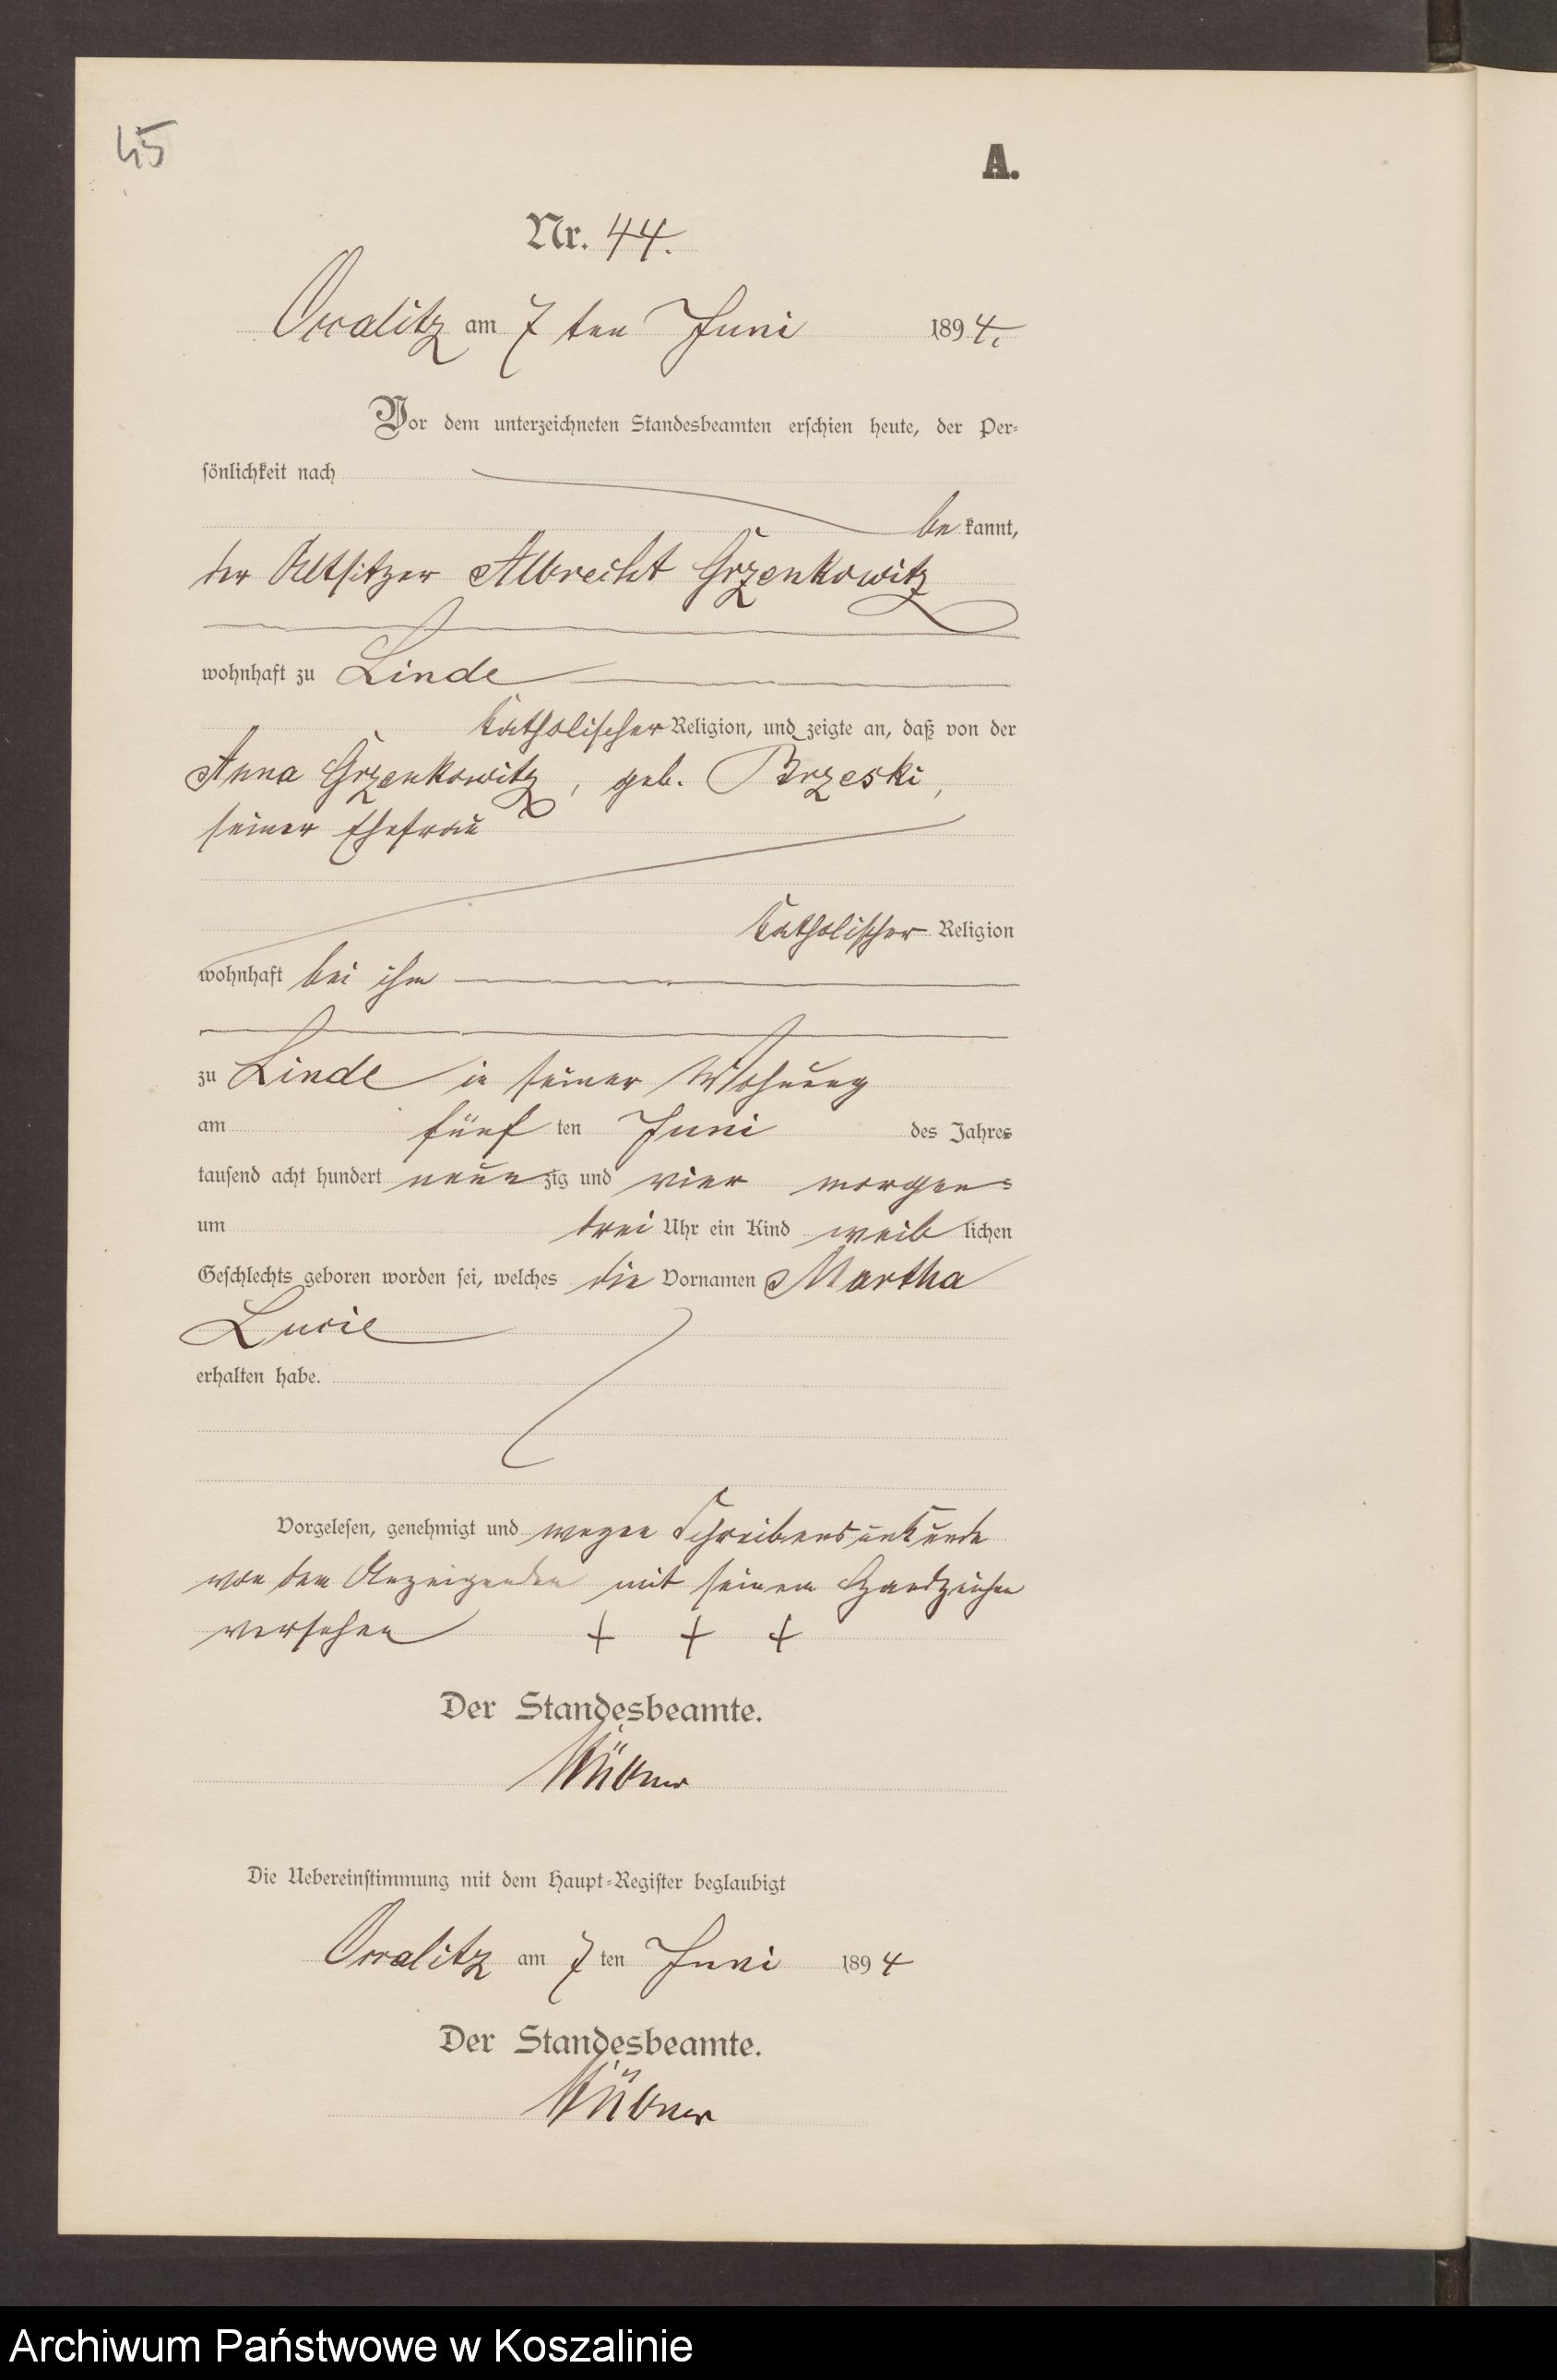 45
A.
Nr. 44.
Ossalitz am 7 ten Juni 1894.
Vor dem unterzeichneten Standesbeamten erschien heute, der Per-
sönlichkeit nach
be kannt,
der Altsitzer Albrecht Grzenkowitz
wohnhaft zu Linde
katholischer Religion, und zeigte an, daß von der
Anna Grzenkowitz, geb. Brzeski,
seiner Ehefrau
katholischer Religion
wohnhaft bei ihm
zu Linde in seiner Wohnung
am fünf ten Juni des Jahres
tausend acht hundert neun zig und vier morgens
um drei Uhr ein Kind weib lichen
Geschlechts geboren worden sei, welches die Vornamen Martha
Lucie
erhalten habe.
Vorgelesen, genehmigt und wegen Schreibensunkunde
von dem Anzeigenden mit seinem Handzeichen
versehen + + +
Der Standesbeamte.
Die Uebereinstimmung mit dem Haupt-Register beglaubigt
Ossalitz am 7 ten Juni 1894
Der Standesbeamte.
Archiwum Państwowe w Koszalinie